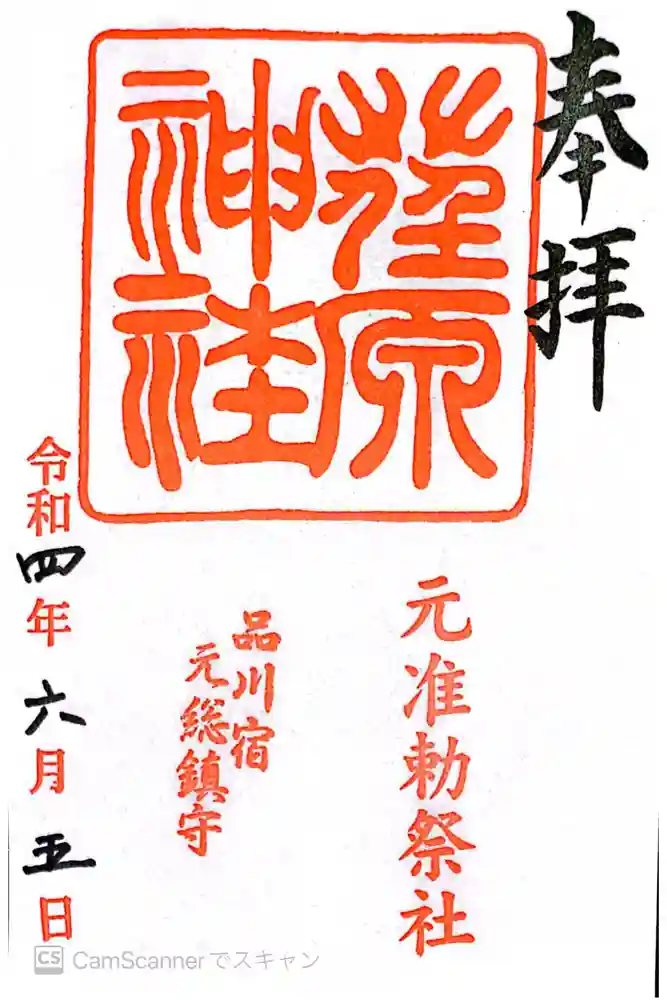 奉拝
荏原
神社
元准勅祭社
品川宿
元総鎮守
令和四年六月五日
CS CamScannerでスキャン